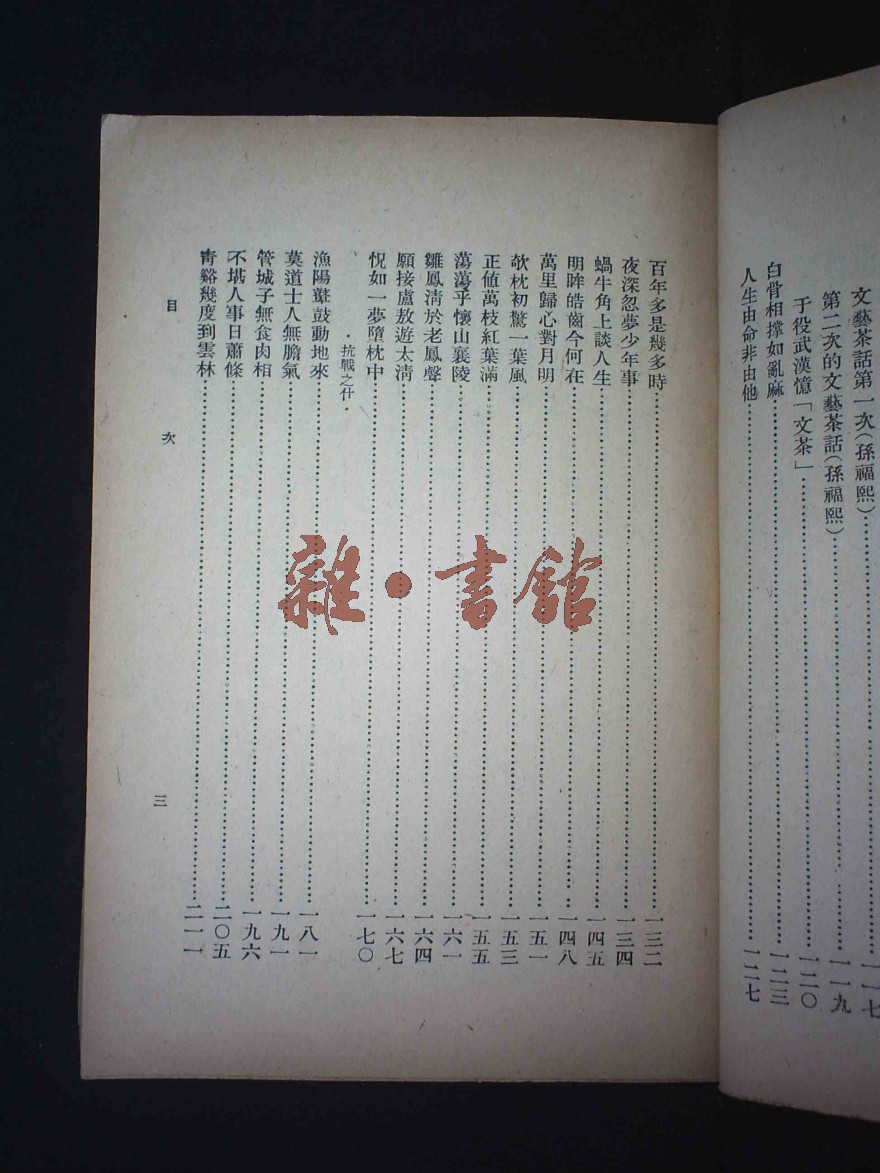 文藝茶話第一次(孫福熙)……一一七
第二次的文藝茶話(孫福熙)……一一九
于役武漢憶「文茶」……一二〇
白骨相撐如亂麻……一二三
人生由命非由他……一二七
百年多是幾多時……一三二
夜深忽夢少年事……一三四
蝸牛角上談人生……一四五
明眸皓齒今何在……一四八
萬里歸心對月明……一五一
欹枕初驚一葉風……一五三
正値萬枝紅葉滿……一五五
蕩蕩乎懷山襄陵……一六一
雛鳳淸於老鳳聲……一六四
願接盧敖遊太淸……一六七
怳如一夢墮枕中……一七〇
・抗戰之什・
漁陽鼙鼓動地來……一八一
莫道士人無膽氣……一九一
管城子無食肉相……一九六
不堪人事日蕭條……二〇五
靑谿幾度到雲林……二一一
目次
三
雜・書館